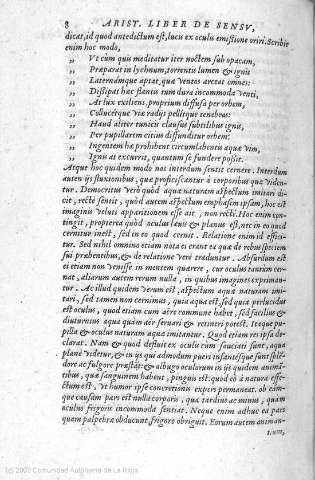 8 ARIST. LIBER DE SENSV,
dicat, id quod antedictum est, lucis ex oculis emissione oriri. Scribit
enim hoc modo,
„ Vt cum quis meditatur iter noctem sub opacam,
„ Præparat in lychnum, torrentis lumen & ignis
„ Laternámque aptat, quæ ventos arceat omnes:
„ Dissipat hæc flantis tum dura incommoda venti,
„ At lux exiliens, proprium diffusa per orbem,
„ Collucétque via radijs pellitque tenebras:
„ Haud aliter tunicis clausus subtilibus ignis,
„ Per pupillarem citius diffunditur orbem:
„ Ingentem ha prohibent circumlabentis aquæ vim,
„ Ignis at excurrit, quantum se fundere possit.
Atque hoc quidem modo nos interdum sentit cernere: Interdum
autem ijs fluxionibus, quæ proficiscantur à corporibus quæ viden-
tur. Democritus verò quòd aquæ naturam aspectum imitari di-
cit, rectè sentit, quòd autem aspectum emphasim ipsam, hoc est
imaginis veluti apparitionem esse ait, non rectè. Hoc enim con-
tingit, propterea quòd oculus læuis & planus est, nec in eo quod
cernitur inest, sed in eo quod cernit. Relatione enim id effici-
tur. Sed nihil omnino etiam nota ei erant ea quæ de rebus speciem
sui præbentibus, & de relatione verè traduntur. Absurdum est
ei etiam non venisse in mentem quærere, cur oculus tantùm cer-
nat, aliarum autem rerum nulla, in quibus imagines expriman-
tur. Ac illud quidem verum est, aspectum aquæ naturam imi-
tari, sed tamen non cernimus, quia aqua est, sed quia perlucidus
est oculus, quod etiam cum aëre commune habet, sed facilius &
diuturnius aqua quàm aër seruari & retineri potest. Itaque pu-
pilla & oculus naturam aquæ imitantur. Quod etiam res ipsa de-
clarat. Nam & quod defluit ex oculis cum sauciati sunt, aqua
planè videtur, & in ijs qui admodum pueri infantésque sunt splen-
dore ac fulgore præstat: & albugo oculorum in ijs quidem animã-
tibus, quæ sanguinem habent, pinguis est: quod eò à natura effe-
ctum est, vt humor ipse concretionis expers permaneat. ob eam-
que causam pars est nulla corporis, quæ tardius ac minus, quàm
oculus frigoris incommoda sentiat. Neque enim adhuc ea pars
quam palpebra obducunt, frigore obriguit. Eorum autem animan-
tium,
(c) 2007 Comunidad Autónoma de La Rioja